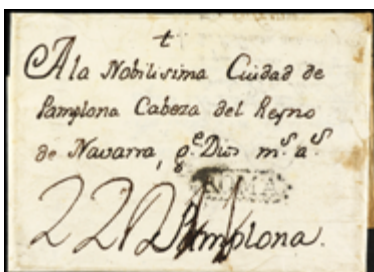 t
A la Nobilisima Ciudad de
Pamplona Cabeza del Reyno
de Navarra, g.e Dios m.s a.s
Pamplona.